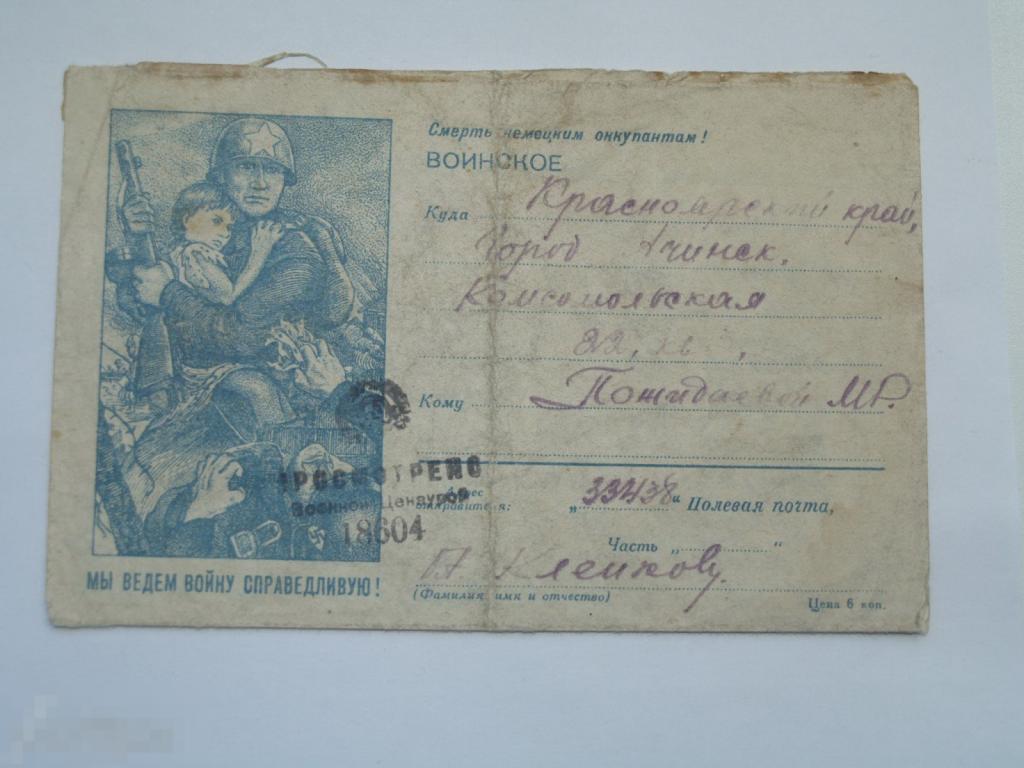 Смерть немецким оккупантам!
ВОИНСКОЕ
Куда Красноярский край,
город Ачинск,
Комсомольская
22, кв ,
Кому Пожидаевой М.
ПРОСМОТРЕНО
Военной Цензурой
18604
Адрес отправителя: „33438“ Полевая почта,
Часть „ “
Клейкову
(Фамилия, имя и отчество)
Цена 6 коп.
МЫ ВЕДЕМ ВОЙНУ СПРАВЕДЛИВУЮ!